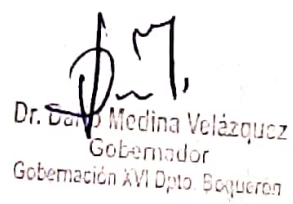 Dr. Darío Medina Velázquez
Gobernador
Gobernación XVI Dpto. Boquerón